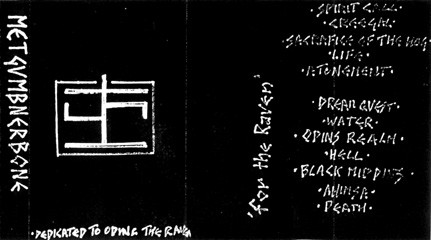 METGVMBNERBONE
·DEDICATED TO ODING THE RAVEN
'for the Raven'
·SPIRIT CALL·
·SACRAFICE OF THE HOG·
·LIFE·
·ATONEMENT·
·DREAM QUEST·
·WATER·
·ODINS REALM·
·HELL·
·BLACK
·AHIMSA·
·DEATH·